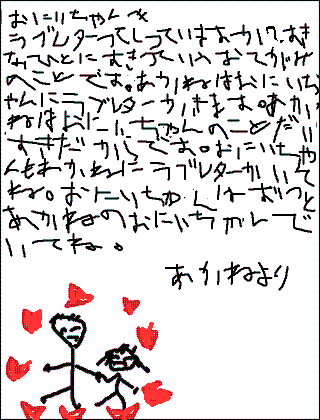 おにいちゃんへ
ラブレターってしっていますか?おお
きなってひとにむきっていうおてがみ
のことです。あかねはおにいち
ゃんにラブレターかきます。あか
ねはおにいちゃんのことだい
すきだからです。おにいちゃ
んもあかねにラブレターかいて
ね。おにいちゃんはずっと
あかねのおにいちゃんで
いてね。
あかねより